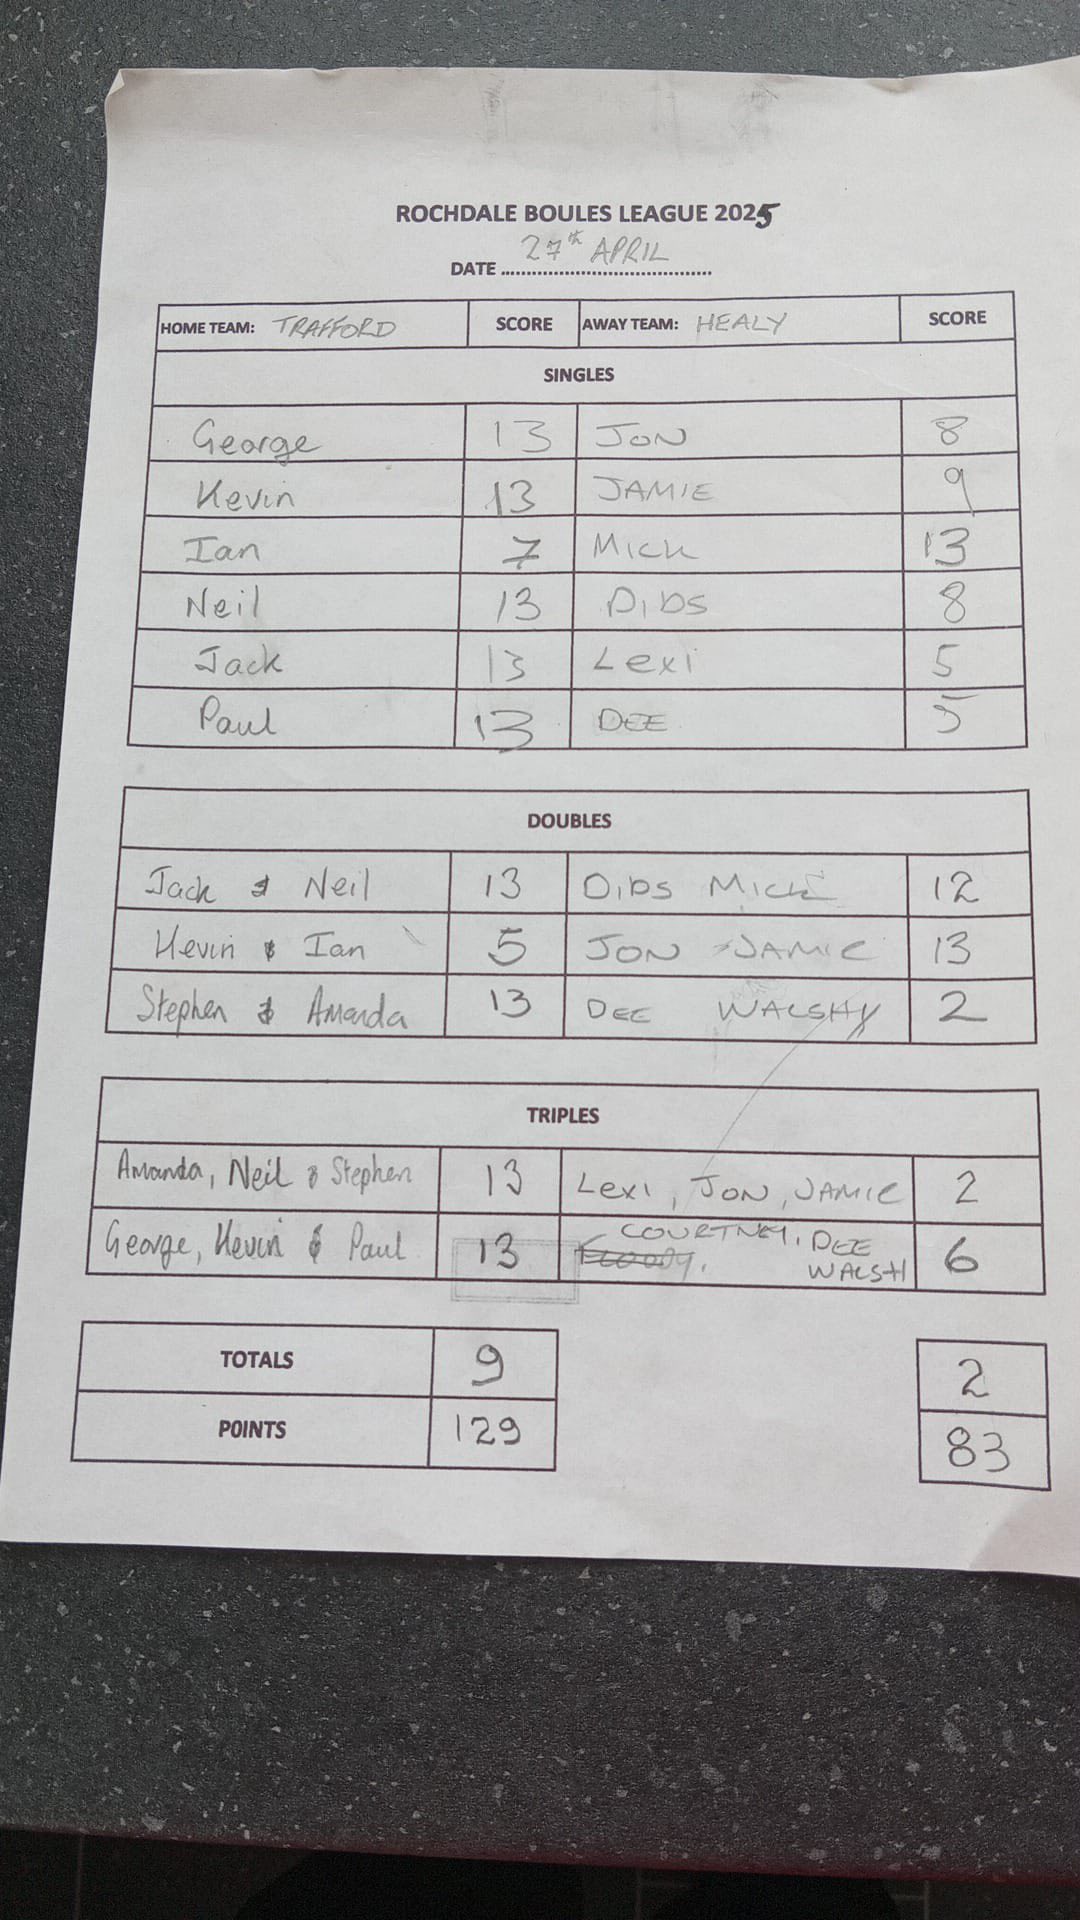 ROCHDALE BOULES LEAGUE 2025
DATE 27th APRIL
HOME TEAM: TRAFFORD SCORE AWAY TEAM: HEALY SCORE
SINGLES
George 13 JON 8
Kevin 13 JAMIE 9
Ian 7 MICK 13
Neil 13 DIBS 8
Jack 13 Lexi 5
Paul 13 DEE 5
DOUBLES
Jack & Neil 13 DIBS MICK 12
Kevin & Ian 5 JON JAMIE 13
Stephen & Amanda 13 DEE WALSHY 2
TRIPLES
Amanda, Neil & Stephen 13 Lexi, JON, JAMIE 2
George, Kevin & Paul 13 COURTNEY, DEE WALSH 6
TOTALS 9 2
POINTS 129 83